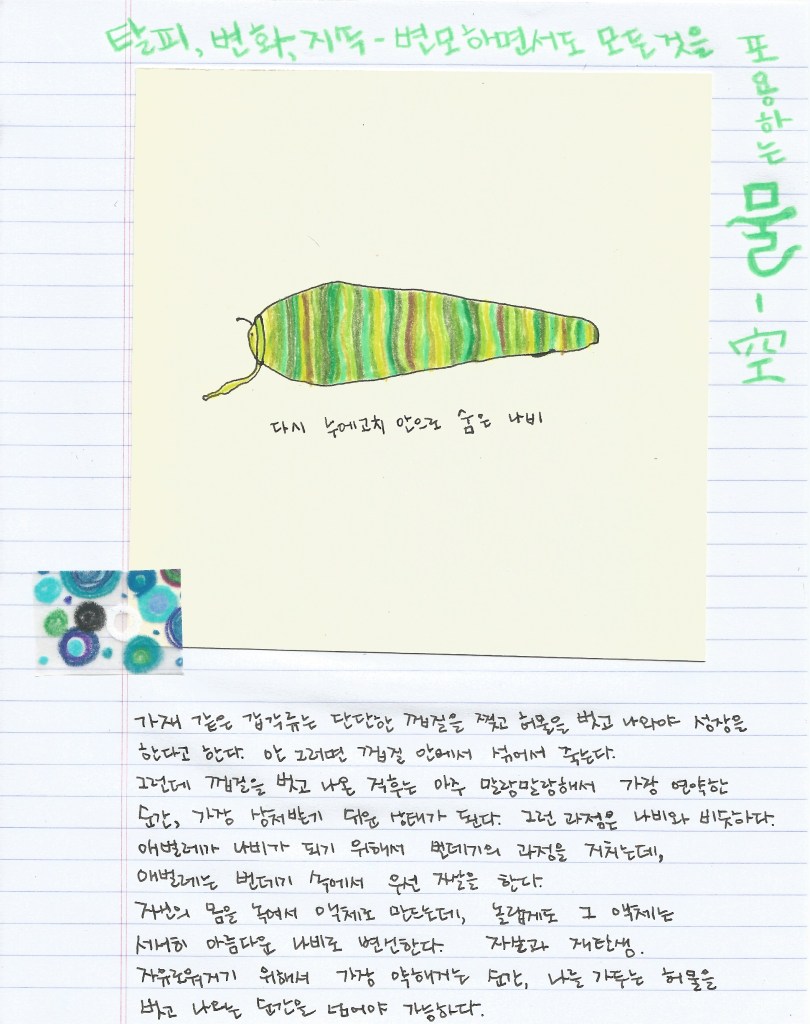 탈피, 변화, 지속 - 변모하면서도 모든 것을
포용하는 물 - 空
다시 누에고치 안으로 숨은 나비
가재 같은 갑각류는 단단한 껍질을 찢고 허물을 벗고 나와야 성장을
한다고 한다. 안 그러면 껍질 안에서 썩어서 죽는다.
그런데 껍질을 벗고 나온 직후는 아주 말랑말랑해서 가장 연약한
순간, 가장 상처받기 쉬운 상태가 된다. 그런 과정은 나비와 비슷하다.
애벌레가 나비가 되기 위해서 번데기의 과정을 거치는데,
애벌레는 번데기 속에서 우선 자살을 한다.
자신의 몸을 녹여서 액체로 만드는데, 놀랍게도 그 액체는
서서히 아름다운 나비로 변신한다. 자살과 재탄생.
자유로워지기 위해서 가장 약해지는 순간, 나를 가두는 허물을
벗고 나오는 순간을 넘어야 가능하다.